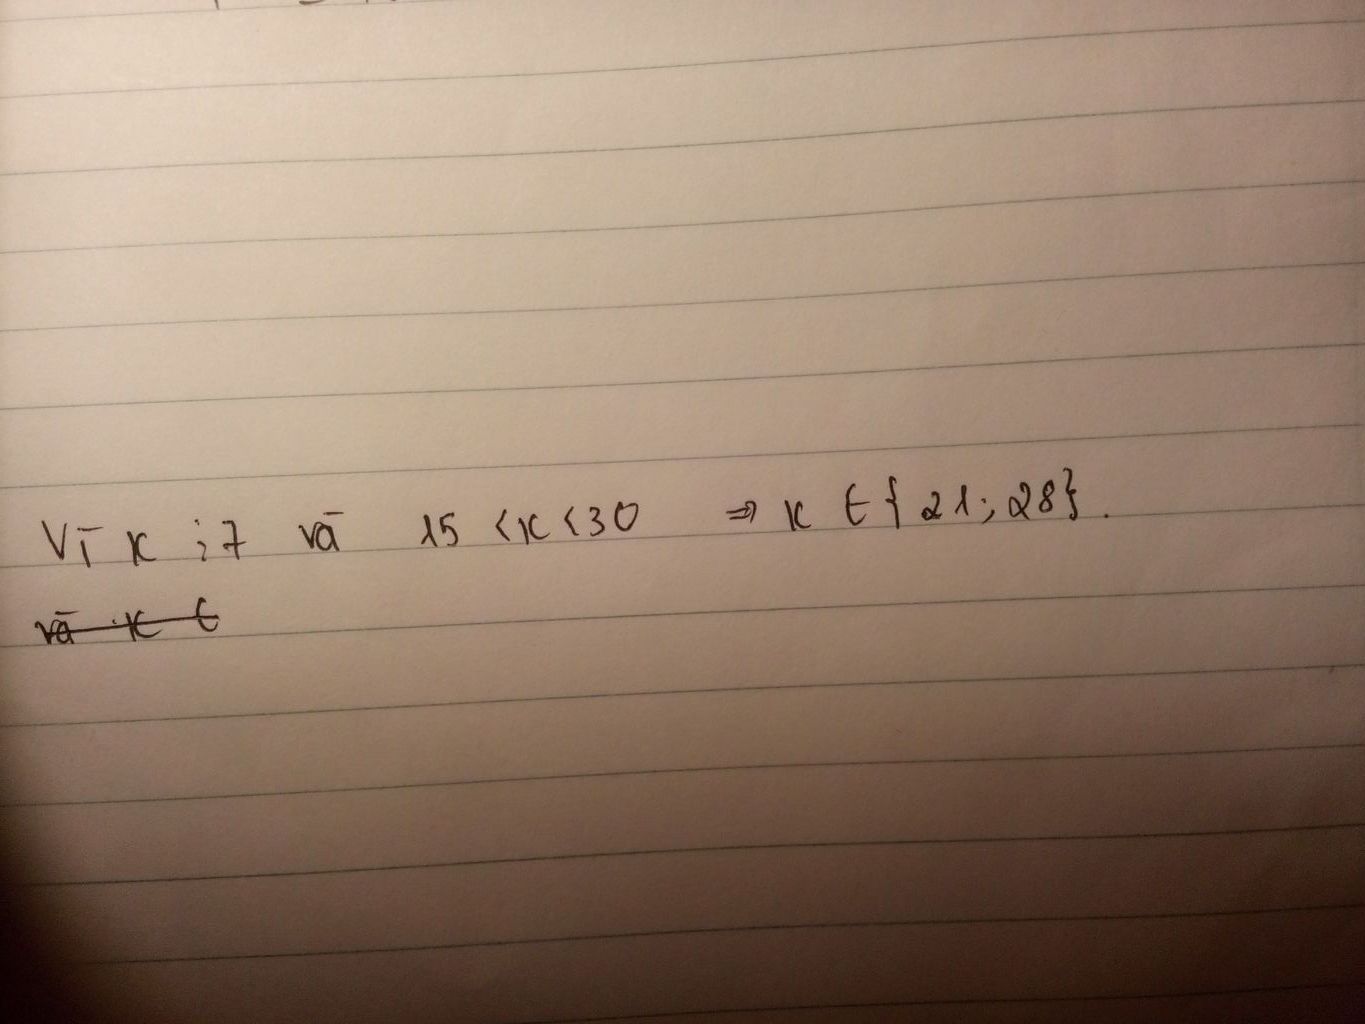 Vì x ⋮ 7 và 15 < x < 30 ⇒ x ∈ {21; 28}.
và x ∈